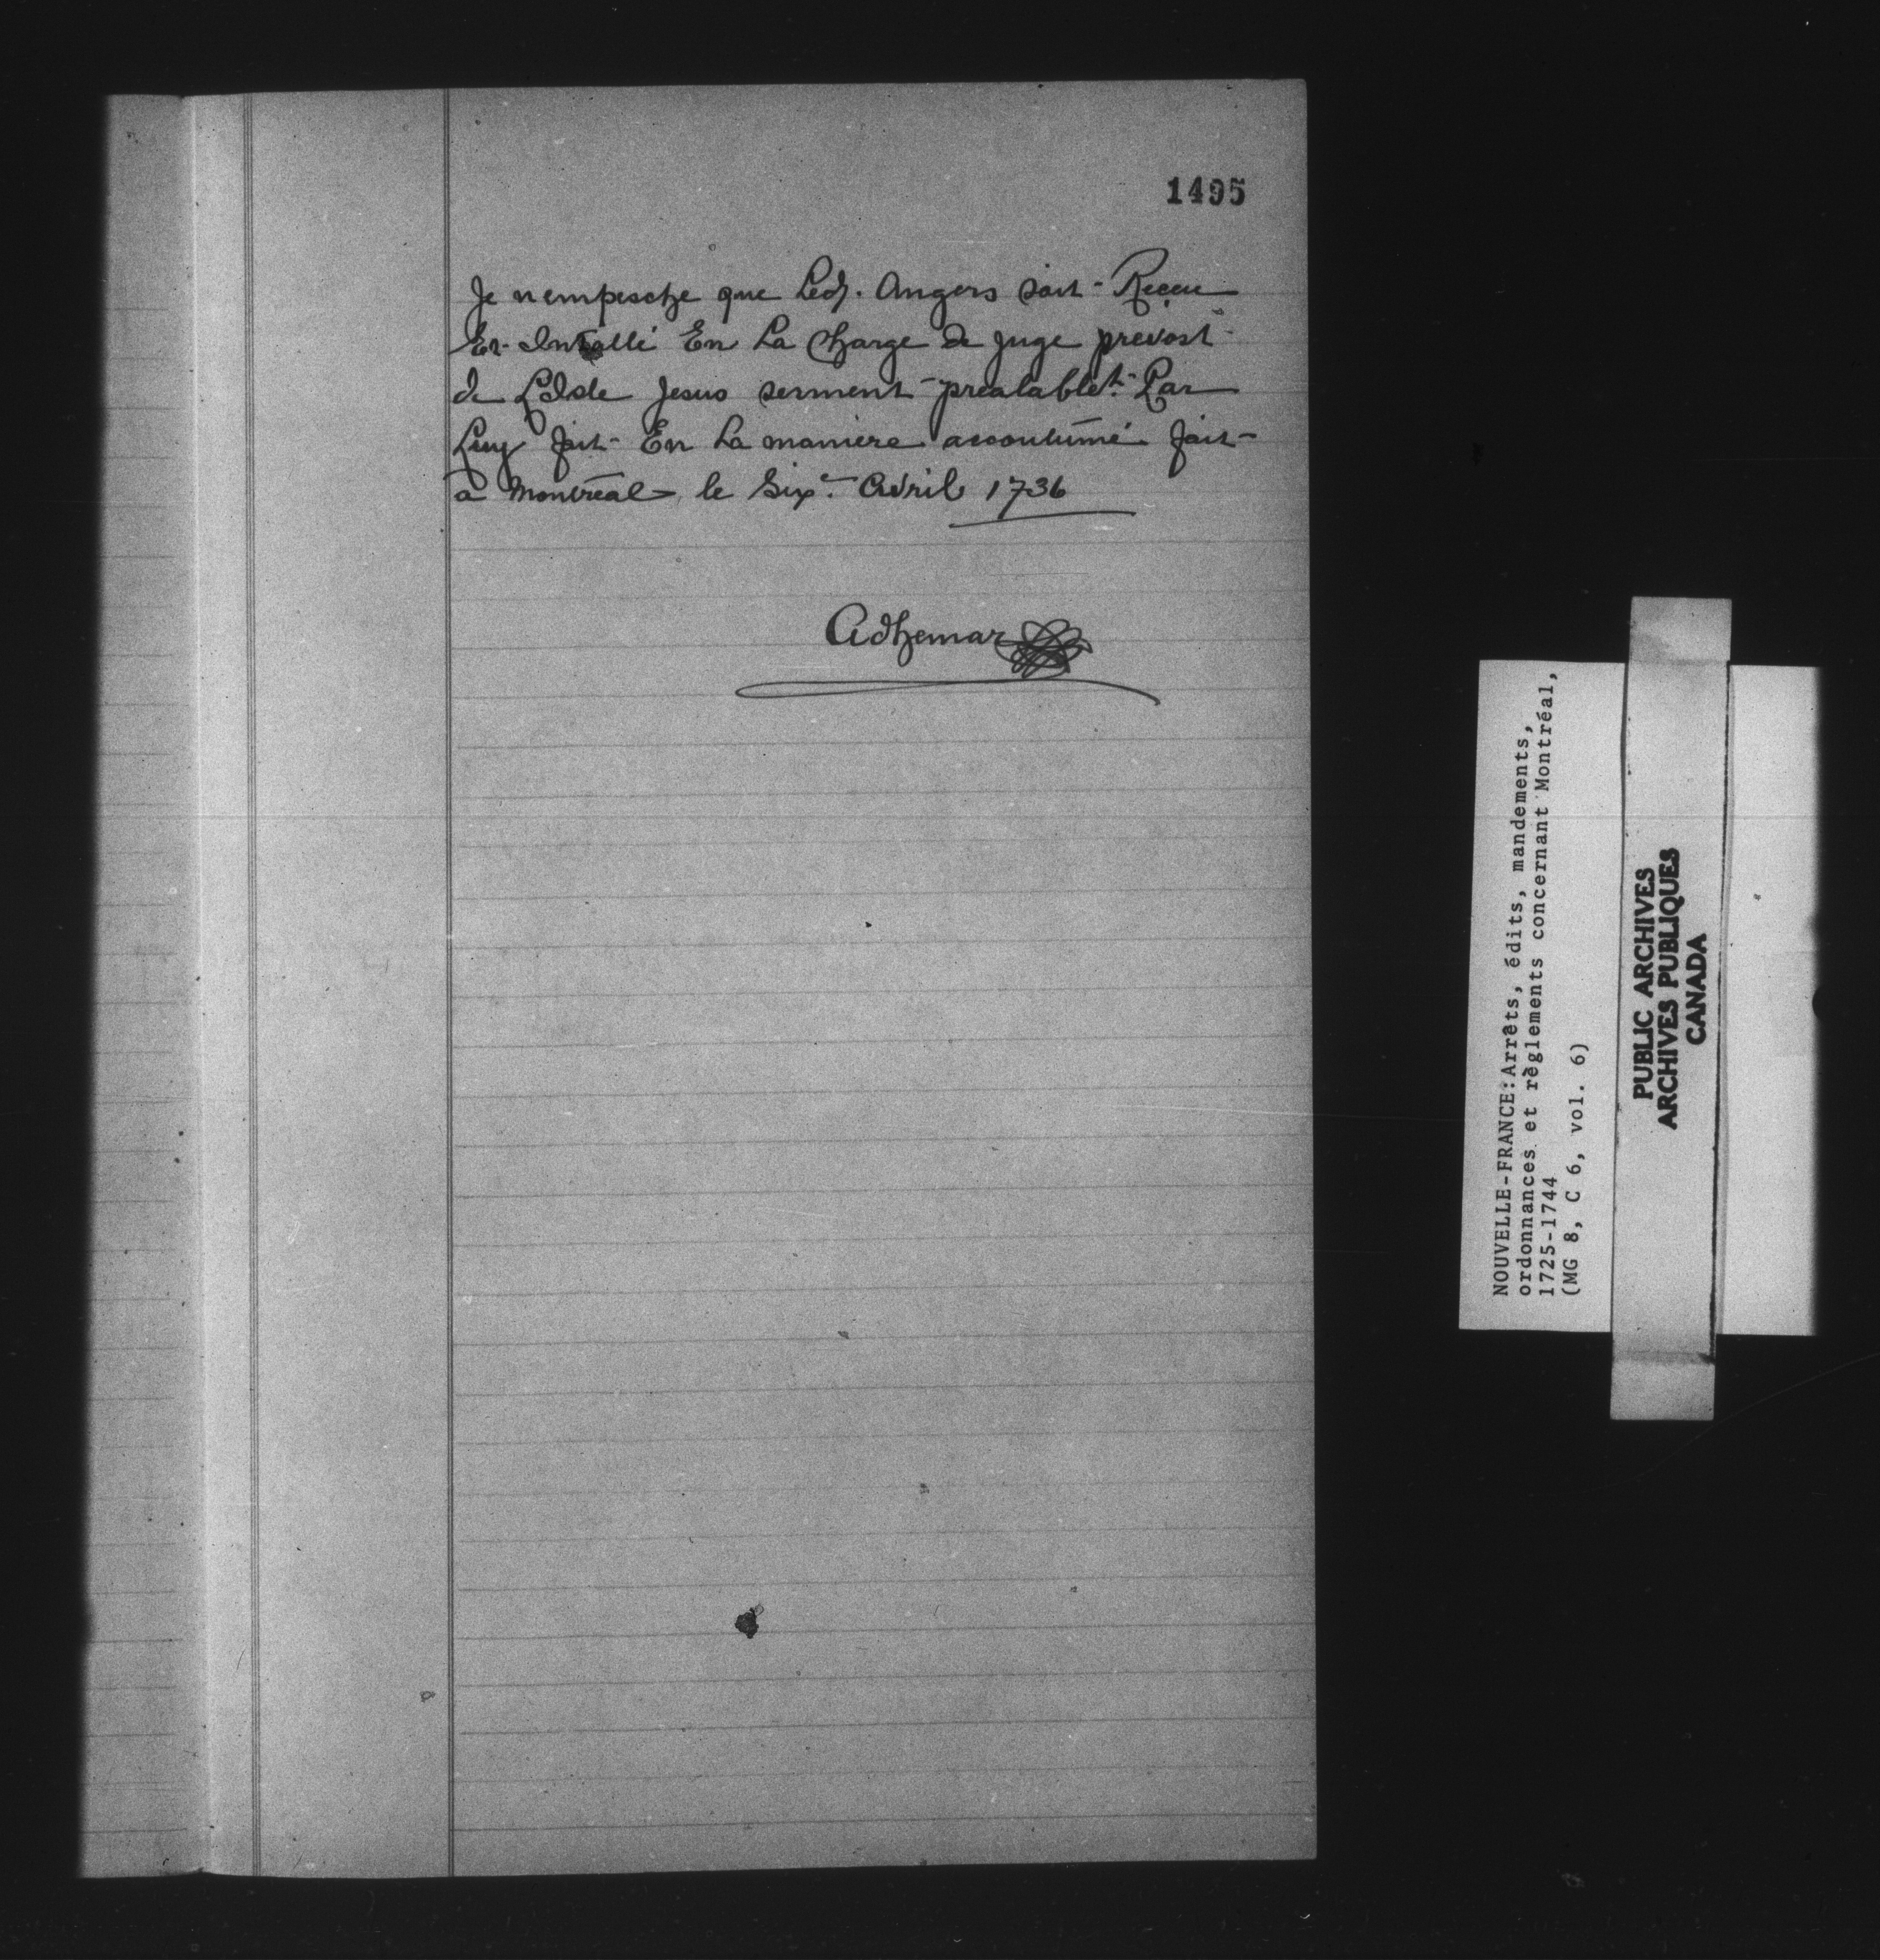 1495
Je nempesche que Led. Angers soit Receu
Et Intallé En La Charge de juge prevost
de LIsle Jesus serment prealablet. Par
Luy fait En La maniere accoutumé fait
a Montreal le Sixe. Avril 1736
Adhemar
NOUVELLE-FRANCE:Arrêts, édits, mandements,
ordonnances et règlements concernant Montréal,
1725-1744
(MG 8, C 6, vol. 6)
PUBLIC ARCHIVES
ARCHIVES PUBLIQUES
CANADA